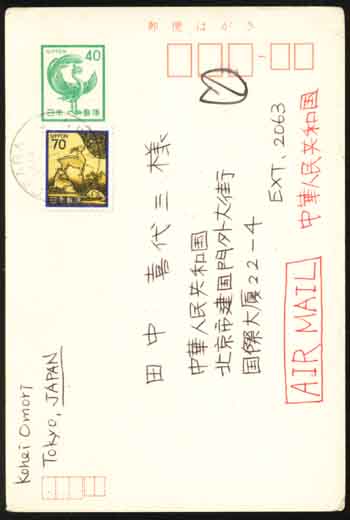 郵便はがき
NIPPON
40
日本郵便
NIPPON
70
日本郵便
EXT, 2063
中華人民共和国
田中喜代三様
中華人民共和国
北京市建国門外大街行
国際大廈22-4
AIR MAIL
Kohei Omori
Tokyo, JAPAN